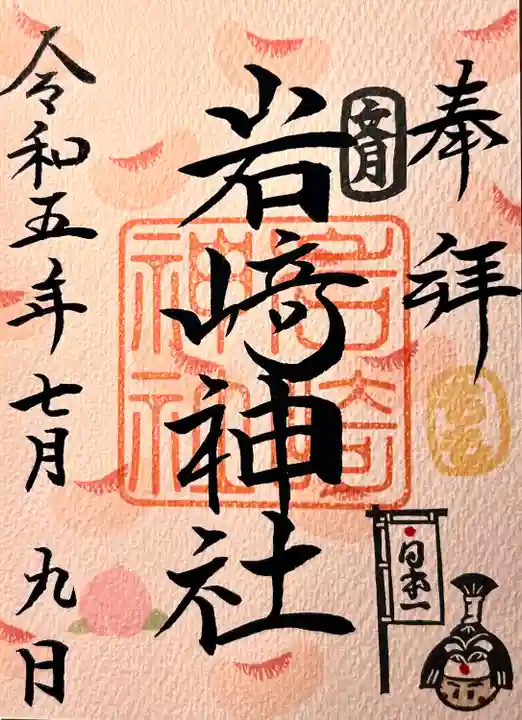 奉拝
文月
岩﨑神社
岩﨑神社
日本一
令和五年七月九日